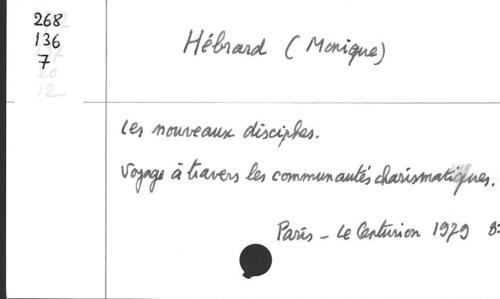 268
136
7
20
12
Hébrard (Monique)
Les nouveaux disciples.
Voyage à travers les communautés charismatiques.
Paris - Le Centurion 1979 8: